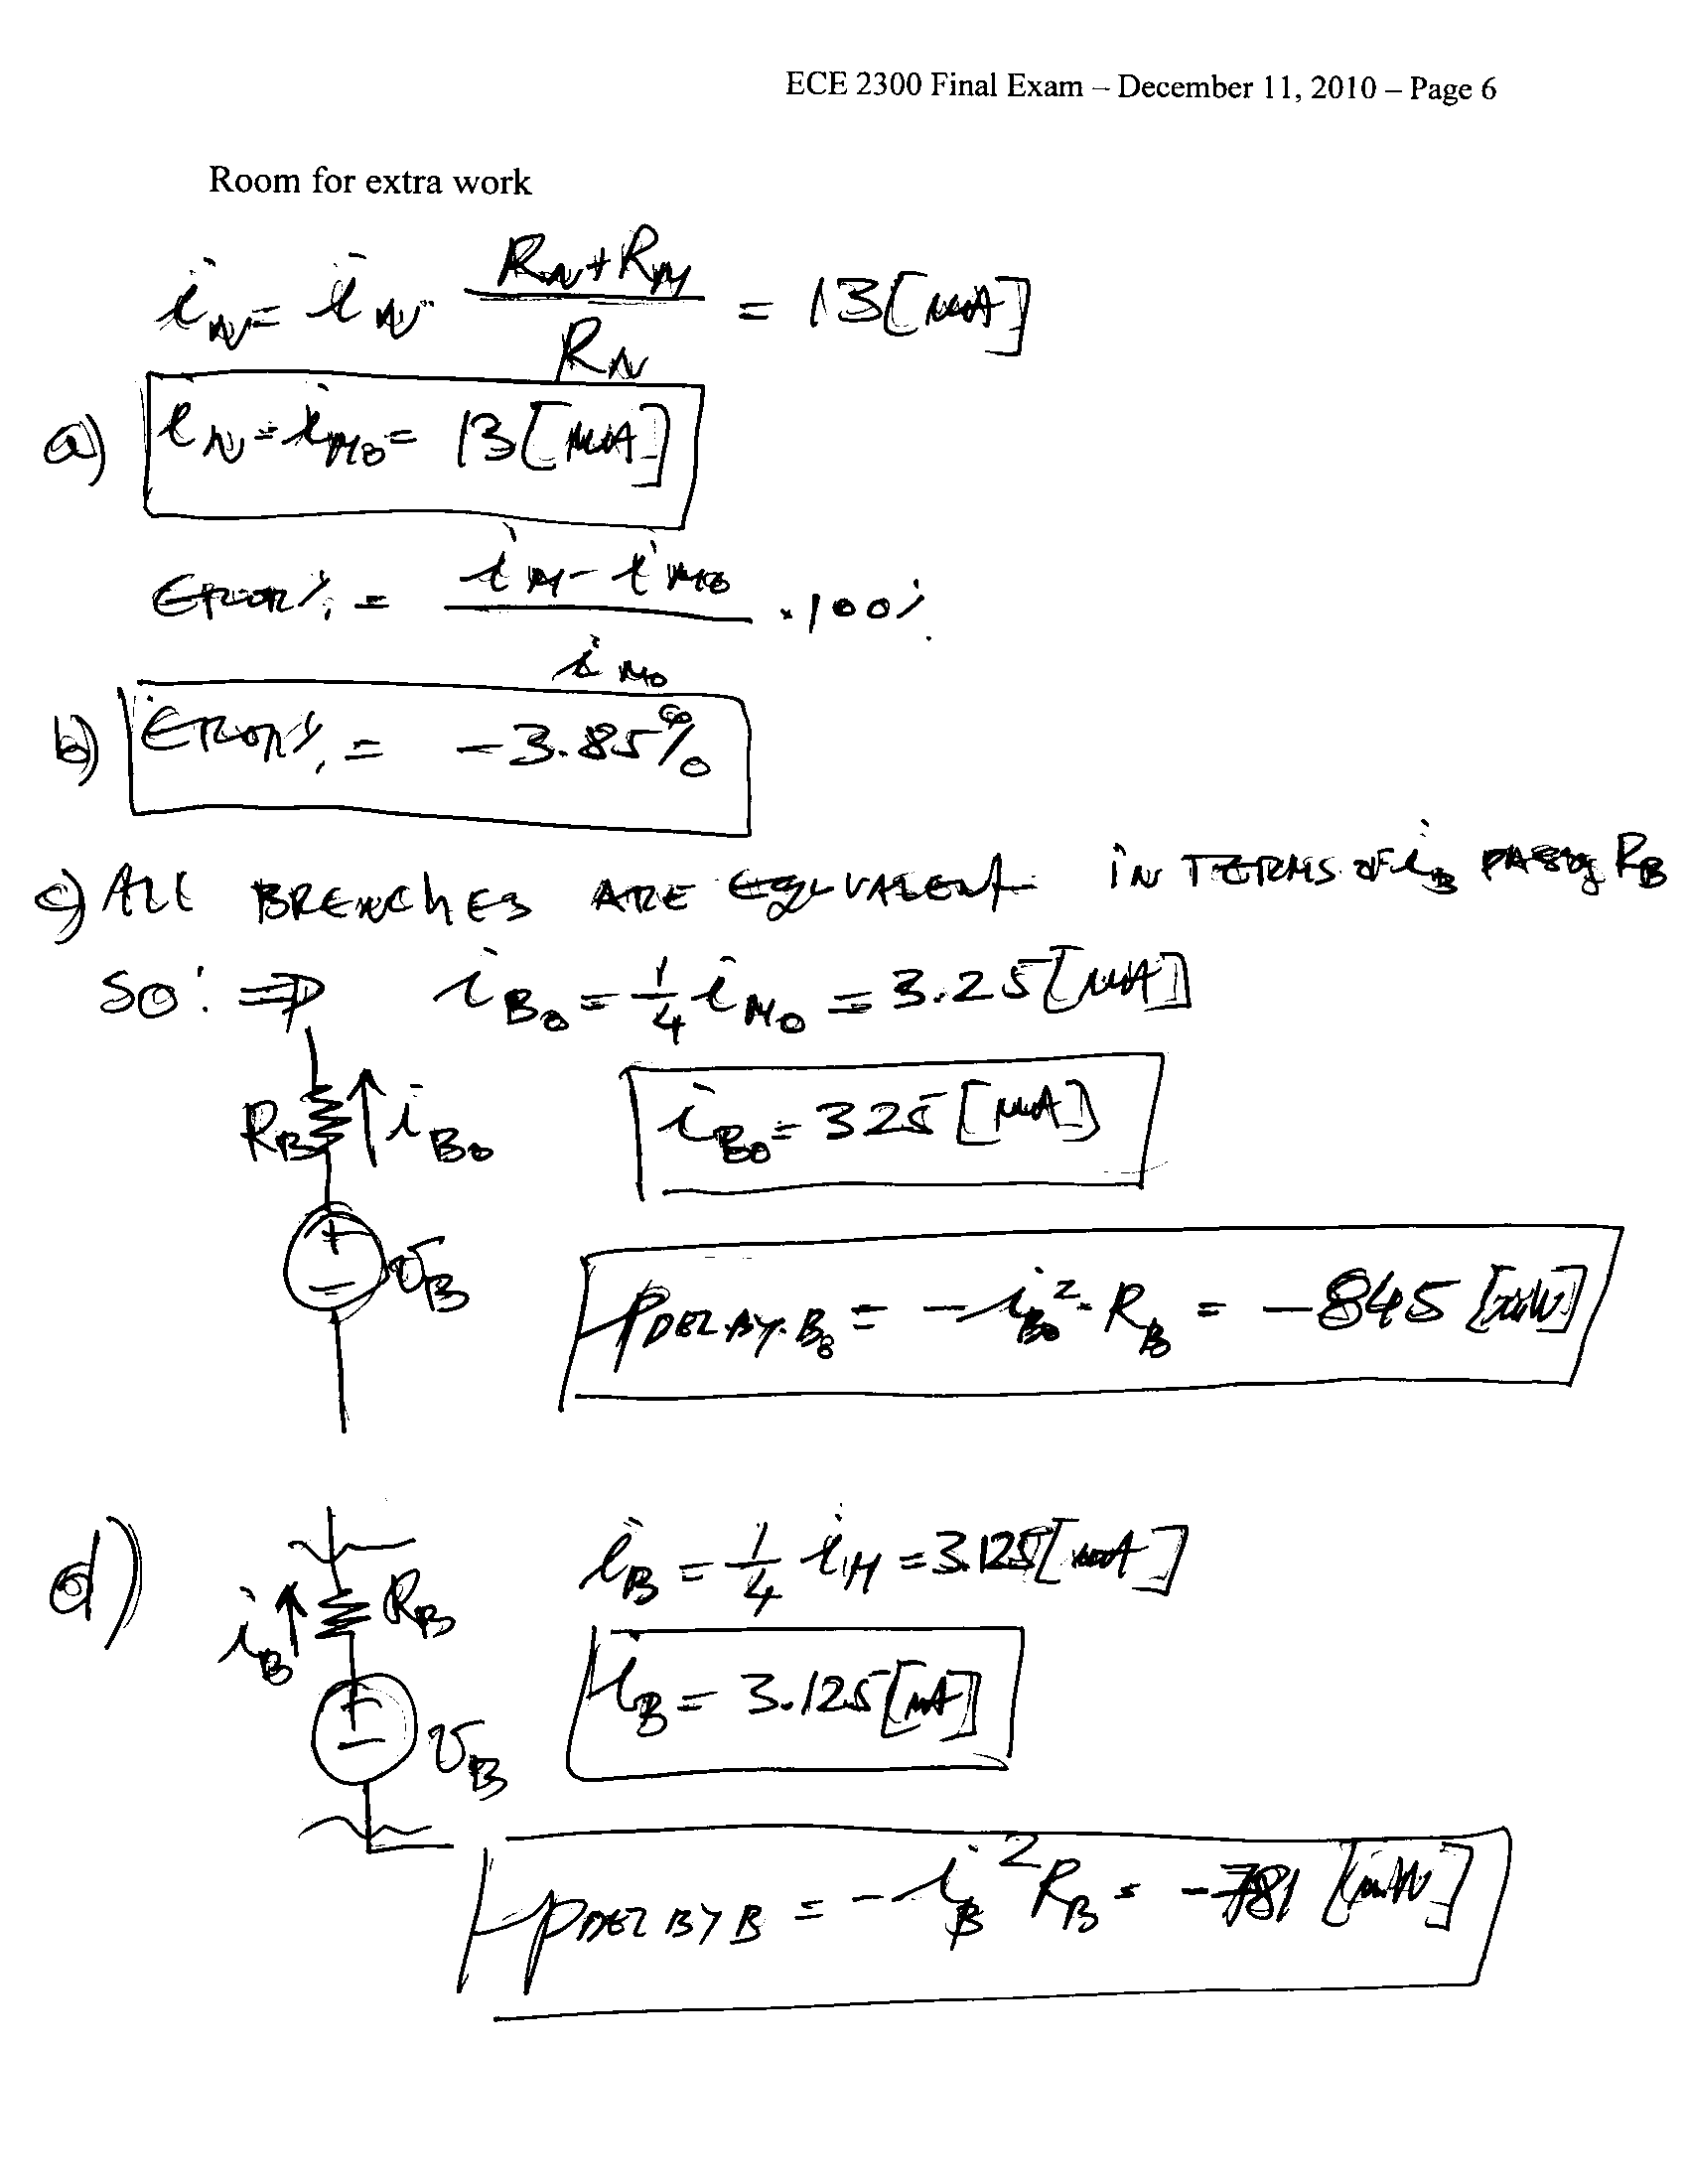 ECE 2300 Final Exam – December 11, 2010 – Page 6
Room for extra work
iN = iN · (RN + RM) / RN = 13 [mA]
a) iN = iM0 = 13 [mA]
ERROR% = (iM - iM0) / iM0 · 100%
b) ERROR% = -3.85%
c) ALL BRENCHES ARE EQUIVALENT IN TERMS OF iB RB
SO: ⇒ iB0 = 1/4 iM0 = 3.25 [mA]
RB iB0
iB0 = 325 [mA]
vB
+
-
PDEL.BY.B0 = -iB0² · RB = -845 [mW]
d) iB = 1/4 iM = 3.125 [mA]
iB RB
iB = 3.125 [mA]
+
-
vB
PDEL BY B = -iB² RB = -781 [mW]